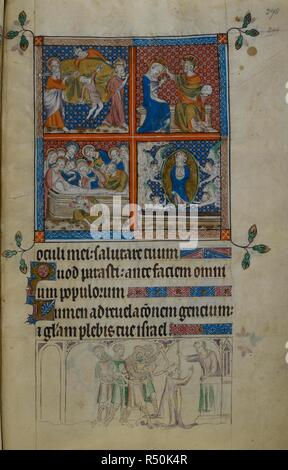 oculi mei: salutare tuum
Quod parasti: ante faciem omni
um populorum
Lumen ad revelacōnem gencium:
& glam plebis tue israel
alamy
Image ID: R50K4R
www.alamy.com